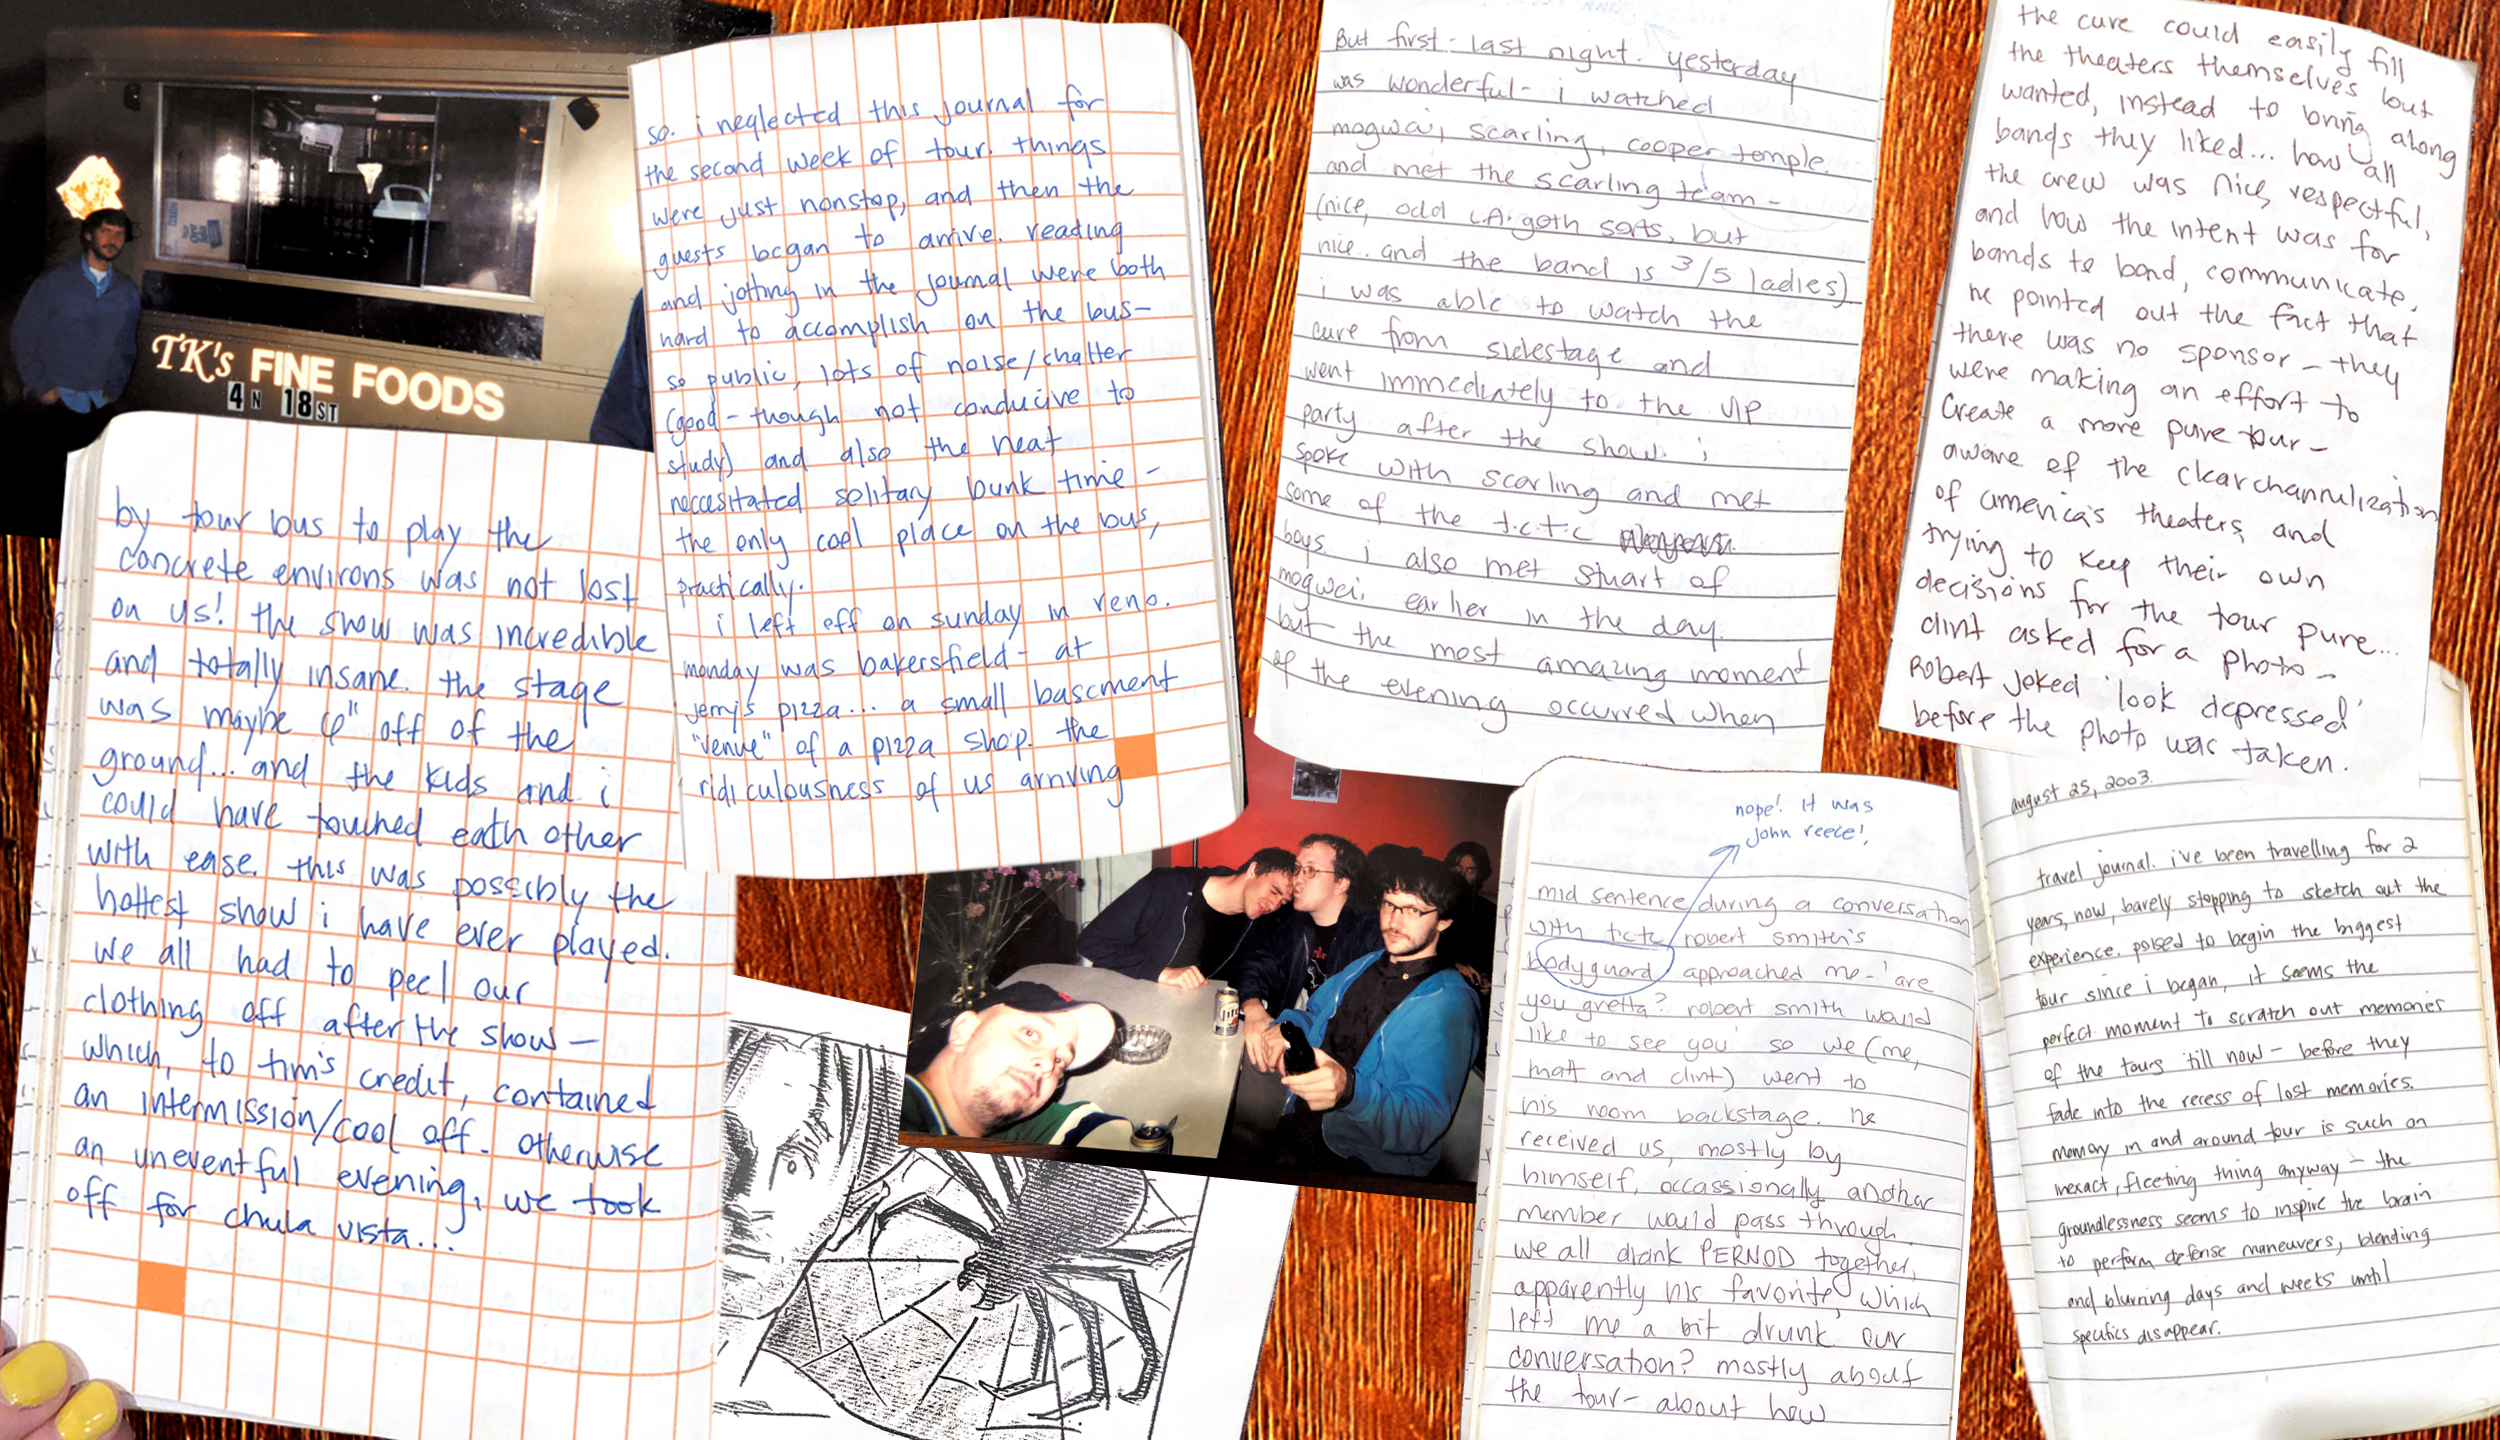 TK's FINE FOODS
4 N 18ST
so. i neglected this journal for
the second week of tour. things
were just nonstop, and then the
guests began to arrive. reading
and jotting in the journal were both
hard to accomplish on the bus-
so public, lots of noise/chatter
(good - though not conducive to
study) and also the heat
neccesitated solitary bunk time -
the only cool place on the bus,
practically.
i left off on sunday in reno.
monday was bakersfield - at
jerry's pizza... a small basement
"venue" of a pizza shop. the
ridiculousness of us arriving
by tour bus to play the
concrete environs was not lost
on us! the show was incredible
and totally insane. the stage
was maybe 6" off of the
ground... and the kids and i
could have touched each other
with ease. this was possibly the
hottest show i have ever played.
we all had to peel our
clothing off after the show -
which, to tim's credit, contained
an intermission/cool off. otherwise
an uneventful evening, we took
off for chula vista...
But first - last night. yesterday
was wonderful - i watched
mogwai, scarling, cooper temple.
and met the scarling team -
(nice, odd LA. goth sorts, but
nice.. and the band is 3/5 ladies)
i was able to watch the
cure from sidestage and
went immediately to the VIP
party after the show. i
spoke with scarling and met
some of the t.c.t.c
boys. i also met stuart of
mogwei, earlier in the day.
but the most amazing moment
of the evening occurred when
nope! it was
john reece!
mid sentence during a conversation
with tctc robert smith's
bodyguard approached me - 'are
you gretta? robert smith would
like to see you' so we (me,
matt and clint) went to
his room backstage. he
received us, mostly by
himself, occassionally another
member would pass through.
we all drank PERNOD together,
apparently his favorite, which
left me a bit drunk. our
conversation? mostly about
the tour - about how
the cure could easily fill
the theaters themselves but
wanted, instead to bring along
bands they liked... how all
the crew was nice, respectful,
and how the intent was for
bands to bond, communicate.
he pointed out the fact that
there was no sponsor - they
were making an effort to
create a more pure tour -
aware of the clearchannelization
of america's theaters, and
trying to keep their own
decisions for the tour pure...
clint asked for a photo -
Robert joked 'look depressed'
before the photo was taken.
august 25, 2003.
travel journal. i've been travelling for 2
years, now, barely stopping to sketch out the
experience. poised to begin the biggest
tour since i began, it seems the
perfect moment to scratch out memories
of the tours 'till now - before they
fade into the recess of lost memories.
memory in and around tour is such an
inexact, fleeting thing anyway - the
groundlessness seems to inspire the brain
to perform defense maneuvers, blending
and blurring days and weeks until
specifics disappear.